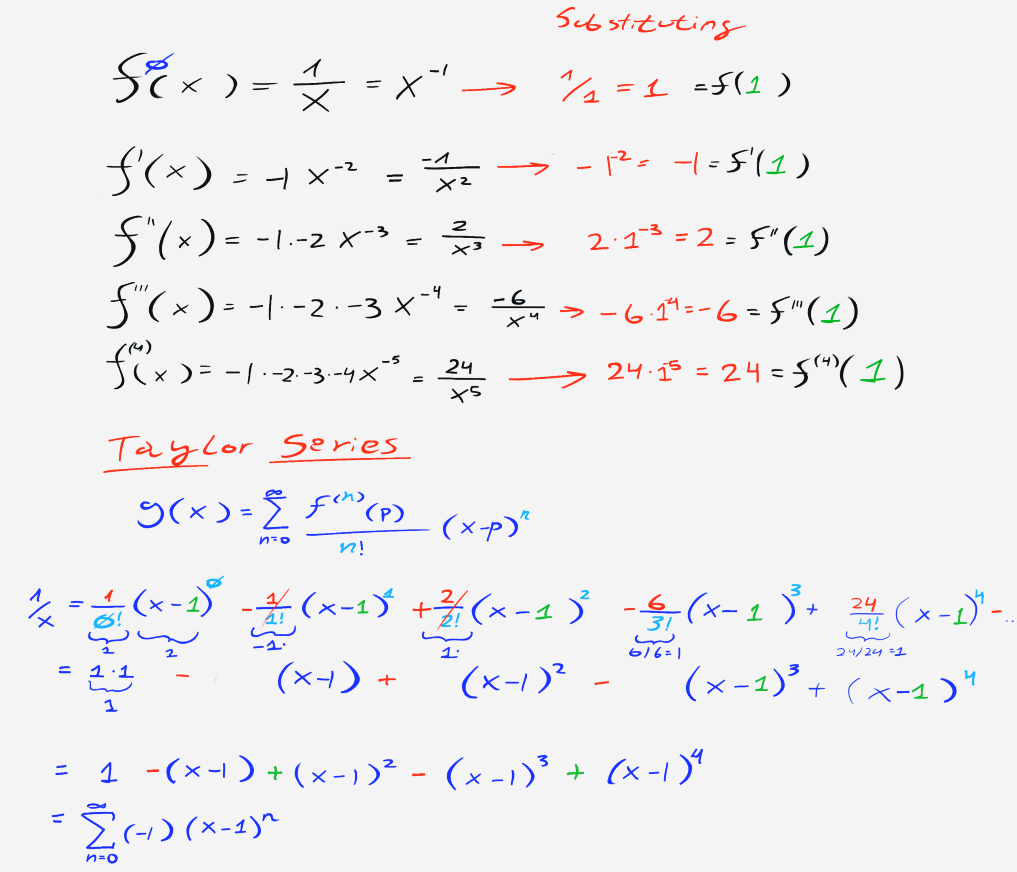 Substituting
f^0(x) = 1/x = x^-1 → 1/1 = 1 = f(1)
f'(x) = -1 x^-2 = -1/x^2 → -1^-2 = -1 = f'(1)
f''(x) = -1·-2 x^-3 = 2/x^3 → 2·1^-3 = 2 = f''(1)
f'''(x) = -1·-2·-3 x^-4 = -6/x^4 → -6·1^-4 = -6 = f'''(1)
f^(4)(x) = -1·-2·-3·-4x^-5 = 24/x^5 → 24·1^-5 = 24 = f^(4)(1)
Taylor Series
g(x) = ∑_{n=0}^∞ f^(n)(p)/n! (x-p)^n
1/x = 1/0! (x-1)^0 - 1/1! (x-1)^1 + 2/2! (x-1)^2 - 6/3! (x-1)^3 + 24/4! (x-1)^4 - ...
1 1 -1· 1· 6/6=1 24/24=1
= 1·1 - (x-1) + (x-1)^2 - (x-1)^3 + (x-1)^4
1
= 1 -(x-1) + (x-1)^2 - (x-1)^3 + (x-1)^4
= ∑_{n=0}^∞ (-1) (x-1)^n